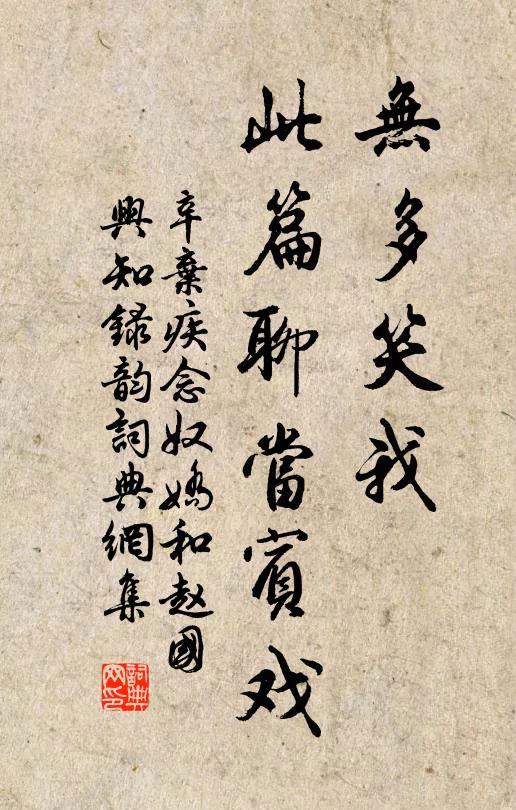 無多笑我
此篇聊當賓戏
辛棄疾念奴嬌和赵國
興知録韵詞典網集
詞典
网印